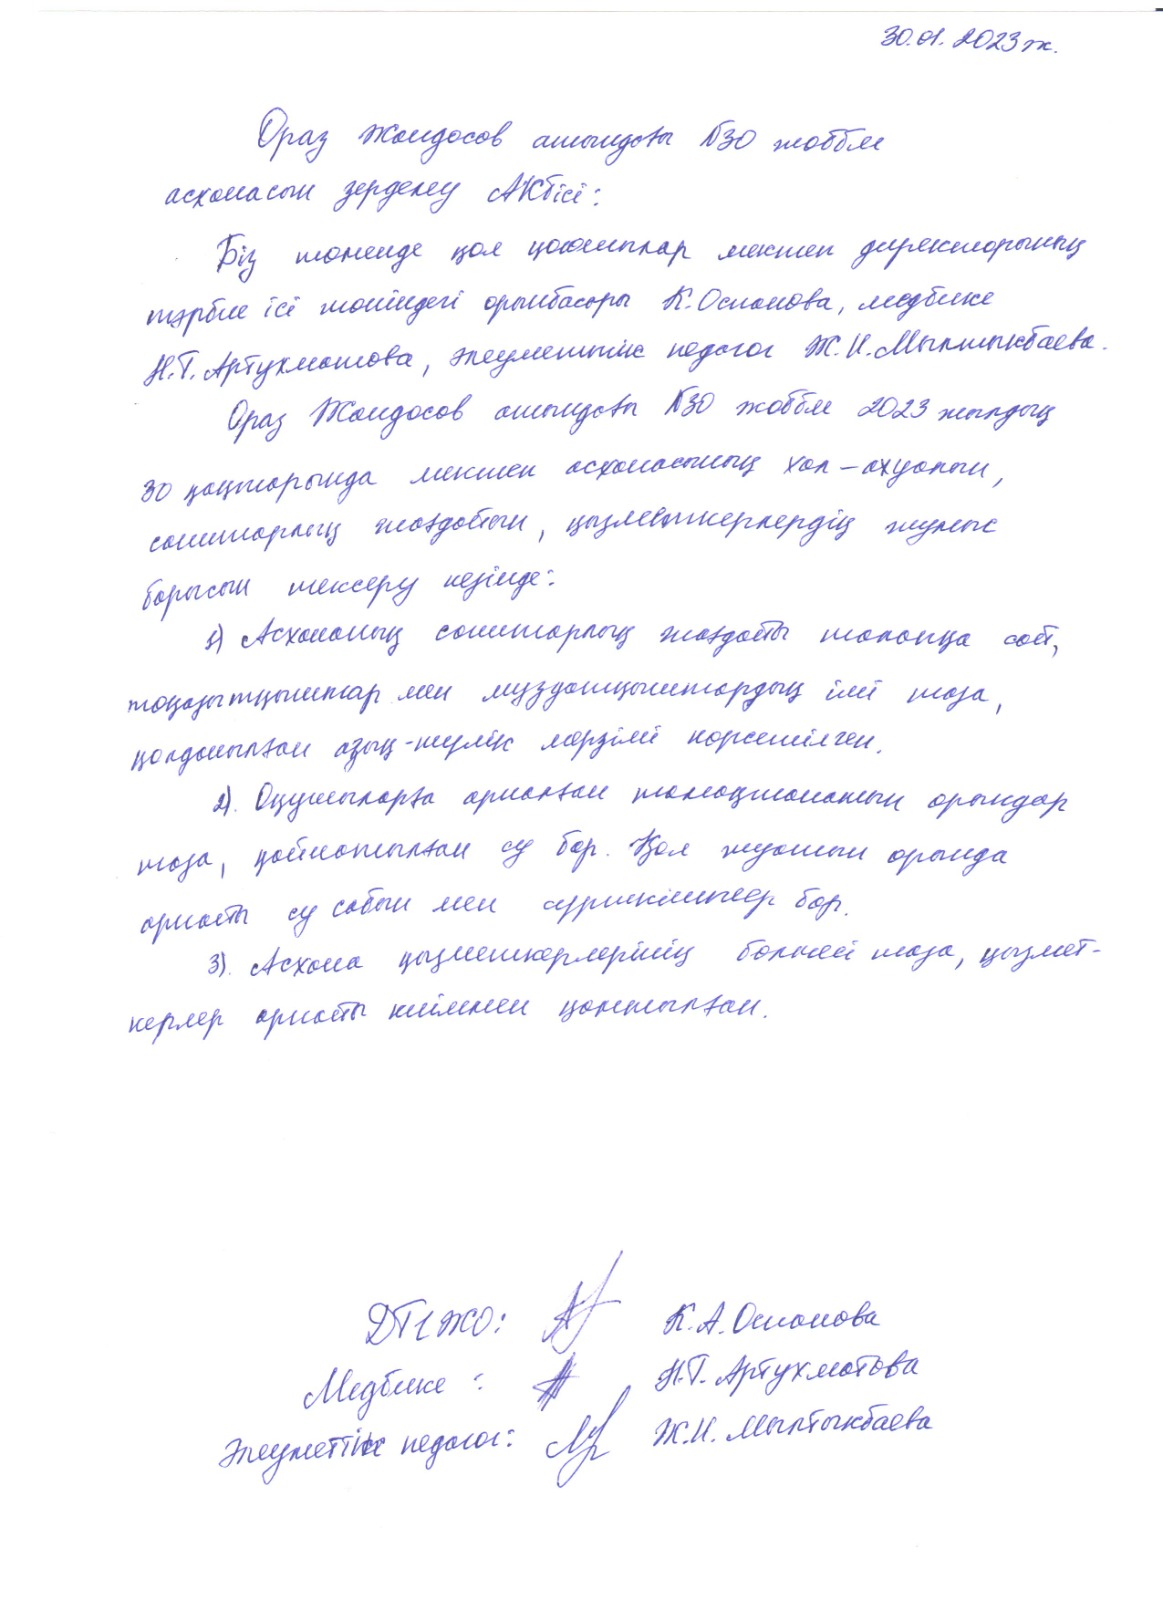 30.01.2023 ж.
Ораз Жандосов атындағы №30 жоббм
асханасын зерделеу АКТісі:
Біз төменде қол қоюшылар мектеп директорының
тәрбие ісі жөніндегі орынбасары К.Оспанова, медбике
Н.Т. Артухматова, әлеуметтік педагог Ж.И.Мылтыкбаева.
Ораз Жандосов атындағы №30 жоббм 2023 жылдың
30 қаңтарында мектеп асханасының хал-ахуалын,
санитарлық жағдайын, қызметкерлердің жұмыс
барысын тексеру кезінде:
1) Асхананың санитарлық жағдайы талапқа сай,
тоңазытқыштар мен мұздатқыштардың іші таза,
қолданылған азық-түлік мерзімі көрсетілген.
2). Оқушыларға арналған тамақтанатын орындар
таза, қайнатылған су бар. Қол жуатын орында
арнайы су сабын мен кептіргіштер бар.
3). Асхана қызметкерлерінің бөлмесі таза, қызмет-
керлер арнайы киіммен қамтылған.
ДТІЖО: К.А.Оспанова
Медбике: Н.Т. Артухматова
Әлеуметтік педагог: Ж.И. Мылтыкбаева